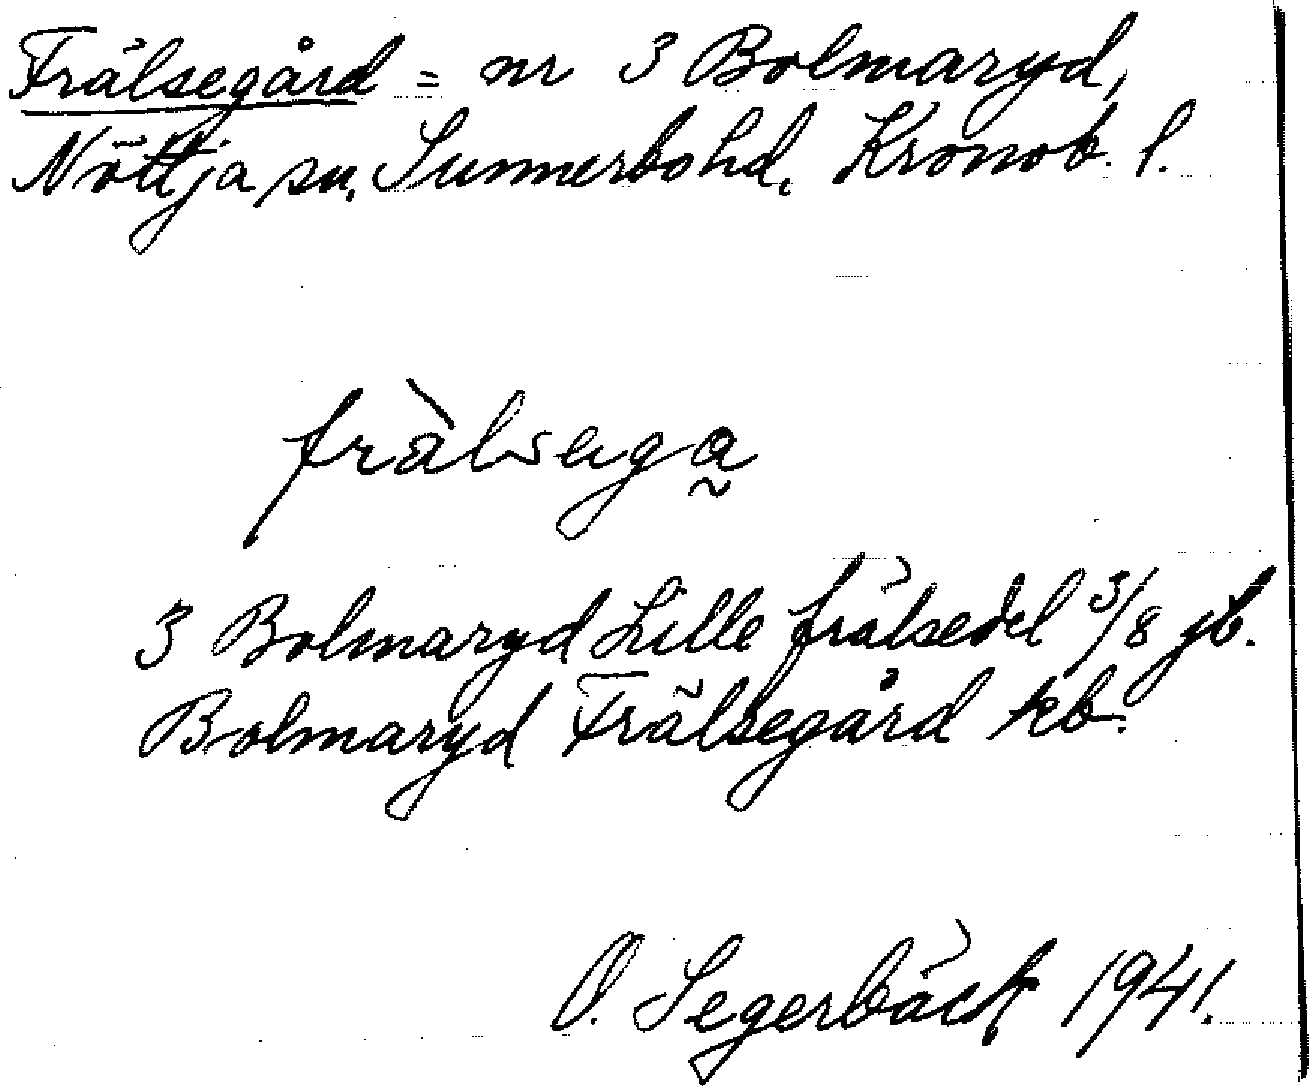 Frälsegård = nr 3 Bolmaryd,
Nöttja sn, Sunnerbo hd, Kronob. l.
3 Bolmaryd Lille frälsedel 3/8 jb.
Bolmaryd Frälsegård kb.
O. Segerbäck 1941.